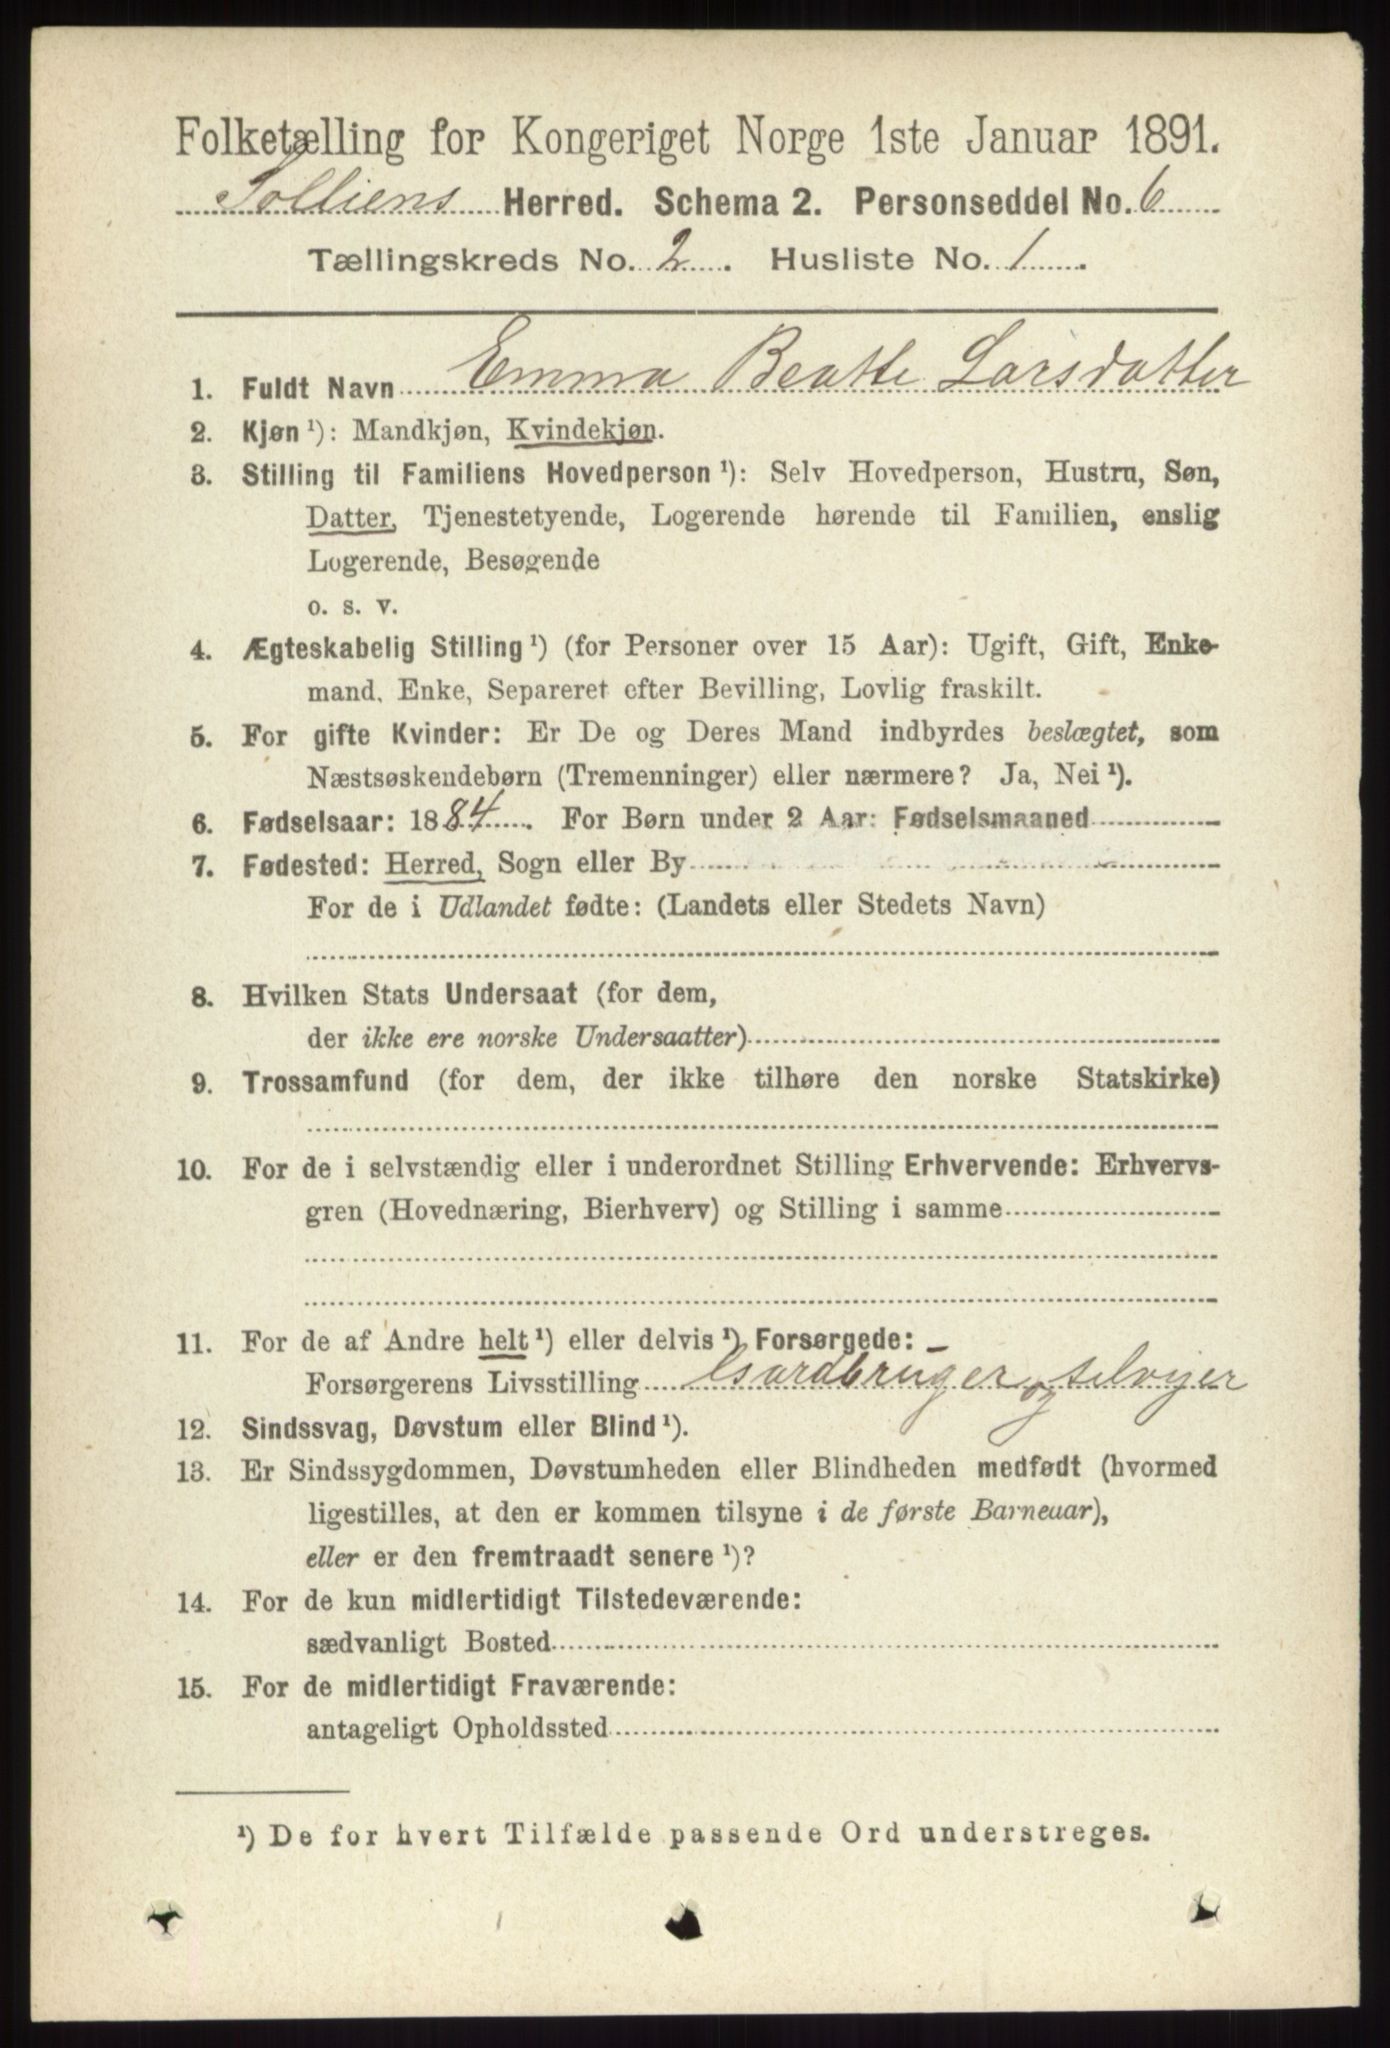 Folketælling for Kongeriget Norge 1ste Januar 1891.
Solliens Herred. Schema 2. Personseddel No. 6
Tællingskreds No. 2. Husliste No. 1.
1. Fuldt Navn Emma Beatte Larsdatter
2. Kjøn ¹): Mandkjøn, Kvindekjøn.
3. Stilling til Familiens Hovedperson ¹): Selv Hovedperson, Hustru, Søn,
Datter, Tjenestetyende, Logerende hørende til Familien, enslig
Logerende, Besøgende
o. s. v.
4. Ægteskabelig Stilling ¹) (for Personer over 15 Aar): Ugift, Gift, Enke-
mand, Enke, Separeret efter Bevilling, Lovlig fraskilt.
5. For gifte Kvinder: Er De og Deres Mand indbyrdes beslægtet, som
Næstsøskendebørn (Tremenninger) eller nærmere? Ja, Nei ¹).
6. Fødselsaar: 1884. For Børn under 2 Aar: Fødselsmaaned
7. Fødested: Herred, Sogn eller By
For de i Udlandet fødte: (Landets eller Stedets Navn)
8. Hvilken Stats Undersaat (for dem,
der ikke ere norske Undersaatter)
9. Trossamfund (for dem, der ikke tilhøre den norske Statskirke)
10. For de i selvstændig eller i underordnet Stilling Erhvervende: Erhvervs-
gren (Hovednæring, Bierhverv) og Stilling i samme
11. For de af Andre helt ¹) eller delvis ¹) Forsørgede:
Forsørgerens Livsstilling Gardbruger og selvejer
12. Sindssvag, Døvstum eller Blind ¹).
13. Er Sindssygdommen, Døvstumheden eller Blindheden medfødt (hvormed
ligestilles, at den er kommen tilsyne i de første Barneaar),
eller er den fremtraadt senere ¹)?
14. For de kun midlertidigt Tilstedeværende:
sædvanligt Bosted
15. For de midlertidigt Fraværende:
antageligt Opholdssted
¹) De for hvert Tilfælde passende Ord understreges.